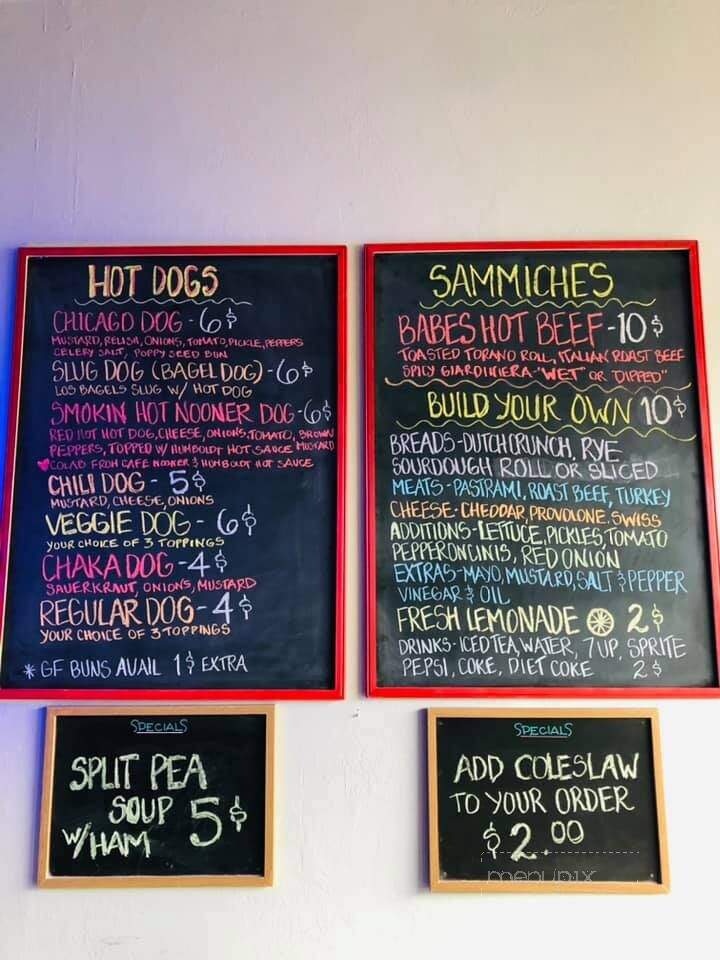 HOT DOGS
CHICAGO DOG - 6$
MUSTARD, RELISH, ONIONS, TOMATO, PICKLE, PEPPERS
CELERY SALT, POPPY SEED BUN
SLUG DOG (BAGEL DOG) - 6$
LOS BAGELS SLUG W/ HOT DOG
SMOKIN HOT NOONER DOG - 6$
RED HOT HOT DOG, CHEESE, ONIONS, TOMATO, BROWN MUSTARD
PEPPERS, TOPPED W/ HUMBOLDT HOT SAUCE
COLAB FROM CAFE NOONER & HUMBOLDT HOT SAUCE
CHILI DOG - 5$
MUSTARD, CHEESE, ONIONS
VEGGIE DOG - 6$
YOUR CHOICE OF 3 TOPPINGS
CHAKA DOG - 4$
SAUERKRAUT, ONIONS, MUSTARD
REGULAR DOG - 4$
YOUR CHOICE OF 3 TOPPINGS
* GF BUNS AVAIL 1$ EXTRA
SAMMICHES
BABES HOT BEEF - 10$
TOASTED TORANO ROLL, ITALIAN ROAST BEEF
SPICY GIARDINIERA - "WET" OR "DIPPED"
BUILD YOUR OWN 10$
BREADS - DUTCH CRUNCH, RYE
SOURDOUGH ROLL OR SLICED
MEATS - PASTRAMI, ROAST BEEF, TURKEY
CHEESE - CHEDDAR, PROVOLONE, SWISS
ADDITIONS - LETTUCE, PICKLES, TOMATO
PEPPERONCINIS, RED ONION
EXTRAS - MAYO, MUSTARD, SALT & PEPPER
VINEGAR & OIL
FRESH LEMONADE 2$
DRINKS - ICED TEA, WATER, 7UP, SPRITE
PEPSI, COKE, DIET COKE 2$
SPECIALS
SPLIT PEA
SOUP 5$
W/HAM
SPECIALS
ADD COLESLAW
TO YOUR ORDER
$2.00
menupix